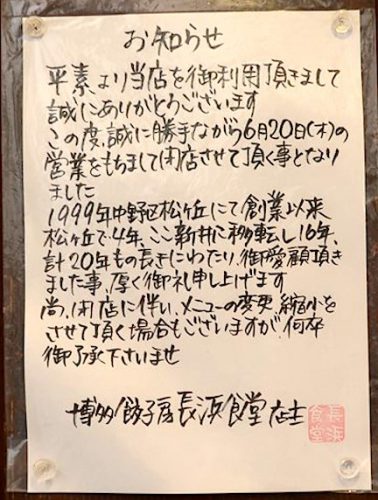 お知らせ
平素より当店を御利用頂きまして
誠にありがとうございます
この度、誠に勝手ながら6月20日(木)の
営業をもちまして閉店させて頂く事となり
ました
1999年中野区松ヶ丘にて創業以来
松ヶ丘で4年、ここ新井に移転し16年、
計20年もの長きにわたり、御愛顧頂き
ました事、厚く御礼申し上げます
尚、閉店に伴い、メニューの変更、縮小を
させて頂く場合もございますが、何卒
御了承下さいませ
博多餃子房長浜食堂 店主
長浜
食堂